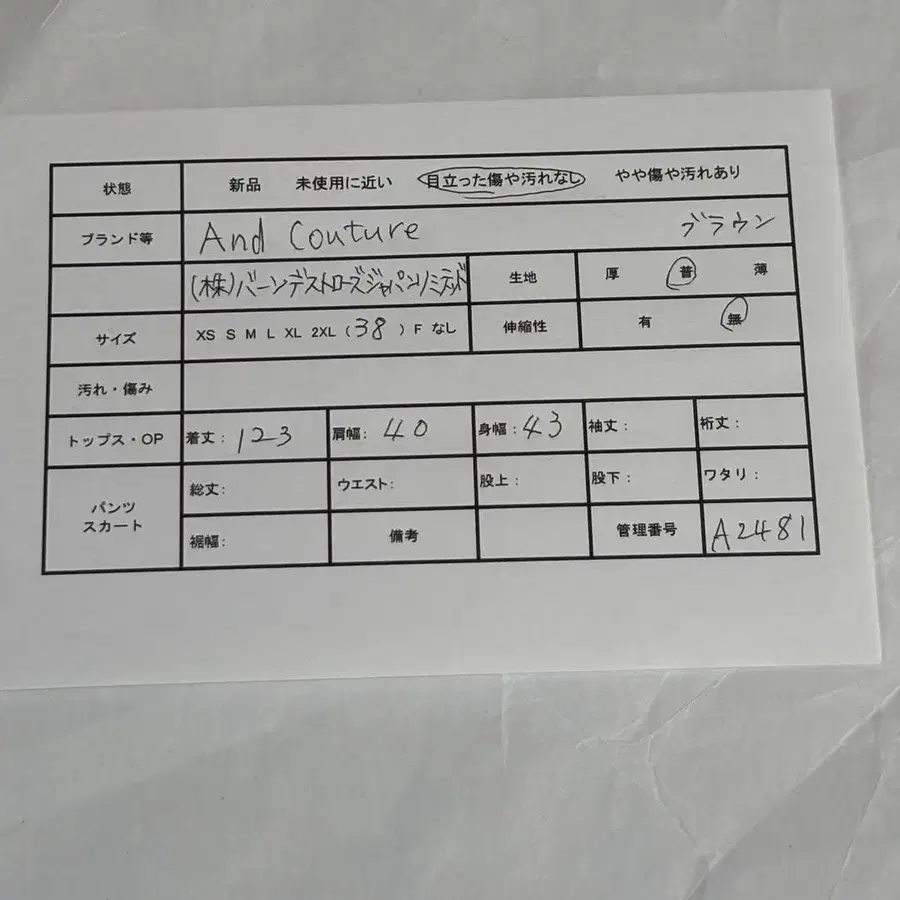 状態 新品 未使用に近い 目立った傷や汚れなし やや傷や汚れあり
ブランド等 And Couture ブラウン
(株)バーンデストローズジャパンリミテッド 生地 厚 普 薄
サイズ XS S M L XL 2XL (38) F なし 伸縮性 有 無
汚れ・傷み
トップス・OP 着丈: 123 肩幅: 40 身幅: 43 袖丈: 裄丈:
パンツ スカート 総丈: ウエスト: 股上: 股下: ワタリ:
裾幅: 備考 管理番号 A2481